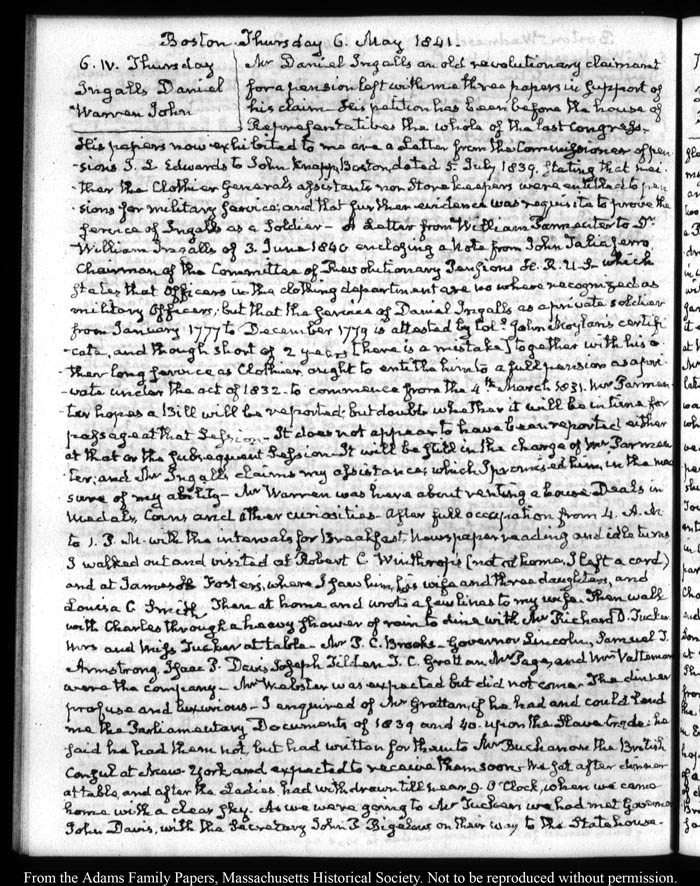 Boston Thursday 6. May 1841.
6. IV. Thursday
Ingalls Daniel
Warren John
Mr Daniel Ingalls an old revolutionary claimant
for a pension left with me three papers in support of
his claim. His petition has been before the house of
Representatives the whole of the last Congress.
His papers now exhibited to me are a Letter from the Commissioner of pen
-sions J. L. Edwards to John Knapp, Boston, dated 5. July 1839. stating that nei
-ther the Clothier Generals assistants nor Store keepers were entitled to pen
-sions for military service; and that further evidence was requisite to prove the
service of Ingalls as a Soldier – A Letter from William Parmenter to Dr
William Ingalls of 3. June 1840 enclosing a Note from John Taliaferro,
Chairman of the Committee of Revolutionary Pensions H. R. U.S. which
states that Officers in the clothing department are no where recognized as
military Officers; but that the service of Daniel Ingalls as a private soldier
from January 1777 to December 1779 is attested by Col. John Moylan's certifi
-cate, and though short of 2 years [there is a mistake] together with his o
-ther long service as Clothier, ought to entitle him to a full pension as a pri
-vate under the act of 1832. to commence from the 4th March 1831. Mr Parmen
-ter hopes a Bill will be reported; but doubts whether it will be in time for
passage at that Session – It does not appear to have been reported either
at that or the subsequent Session. It will be still in the charge of Mr Parmen
-ter; and Mr Ingalls claims my assistance; which I promised him, in the mea
sure of my ability – Mr Warren was here about renting a house. Deals in
Medals, Coins and other curiosities – After full occupation from 4. A.M
to 1. P.M. with the intervals for Breakfast, Newspaper reading and idle turns
I walked out and visited at Robert C. Winthrop's (not at home, I left a card)
and at James H Foster's, where I saw him, his wife and three daughters, and
Louisa C Smith. Then at home and wrote a few lines to my wife. Then walk
with Charles through a heavy shower of rain to dine with Mr Richard D. Tucker.
Mrs and Miss Tucker at table – Mr P. C. Brooks – Governor Lincoln, Samuel T.
Armstrong, Isaac P. Davis, Joseph Tilden T. C. Grattan Mr Page, and Mr
were the company – Mr Webster was expected but did not come. The dinner
profuse and luxurious – I enquired of Mr Grattan, if he had and could lend
me the Parliamentary Documents of 1839 and 40. upon the Slave trade: he
said he had them not, but had written for them to Mr Buchanan the British
Consul at New-York, and expected to receive them soon. We sat after dinner
at table, and after the Ladies had withdrawn till near 9. O'Clock, when we came
home with a clear sky. As we were going to Mr Tucker's we had met Governor
John Davis, with the Secretary John P Bigelow on their way to the Statehouse.
From the Adams Family Papers, Massachusetts Historical Society. Not to be reproduced without permission.